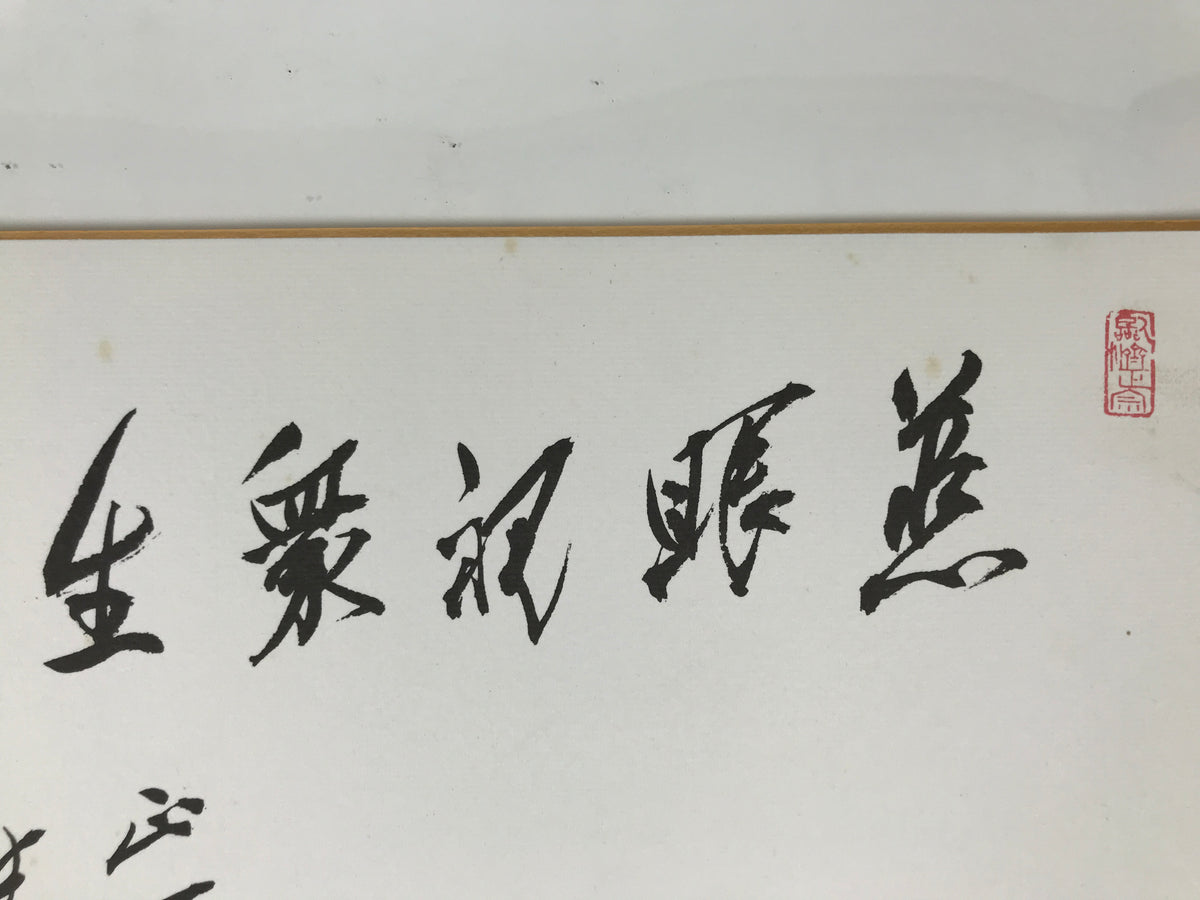 慈眼視衆生
正